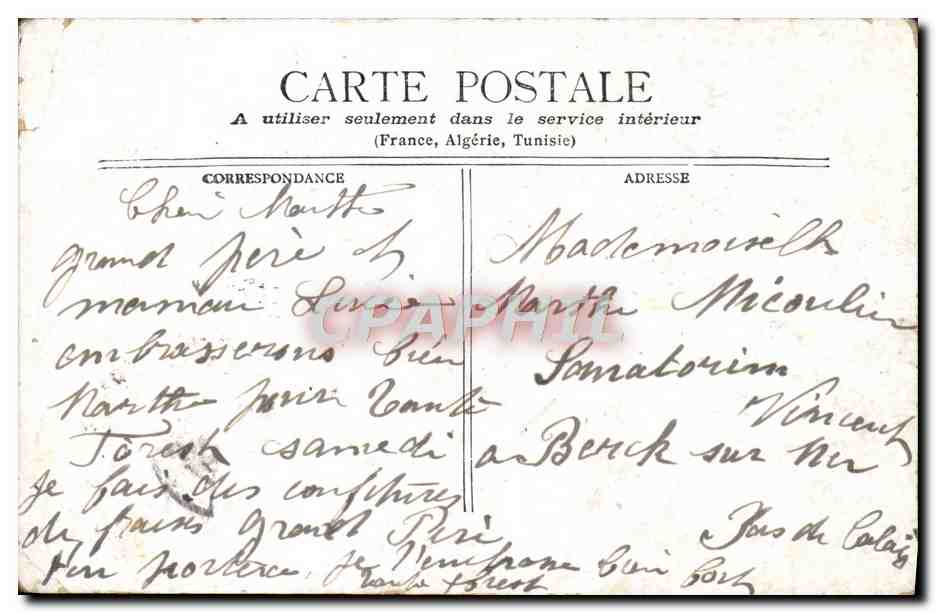 CARTE POSTALE
A utiliser seulement dans le service intérieur
(France, Algérie, Tunisie)
CORRESPONDANCE
Cheri Marthe
grand père et
maman Lucie
embrasserons bien
Marthe pour Tante
samedi
Je fais des confitures
de fraises grand Peré
t'en portera. je t'embrasse bien fort
Tante
ADRESSE
Mademoiselle
Marthe Micoulin
Sanatorium
Vincent
a Berck sur Mer
Pas de Calais
CPAPHIL